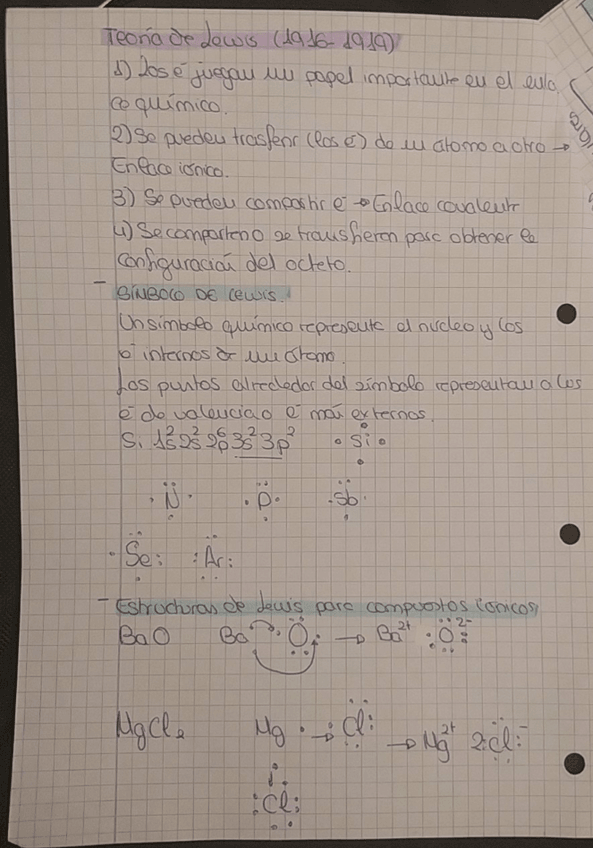 Teoría de Lewis (1916-1919)
1) Los é juegan un papel importante en el enla
ce químico.
2) Se pueden trasferir (los é) de un atomo a otro →
Enlace iónico.
3) Se pueden compartir é → Enlace covalente
4) Se comparten o se transfieren para obtener la
configuración del octeto.
- SÍMBOLO DE LEWIS.
Un símbolo químico representa el nucleo y los
é internos de un átomo.
Los puntos alrededor del símbolo representan a los
é de valencia o é más externos.
Si 1s² 2s² 2p⁶ 3s² 3p² Si
N P Sb
Se Ar
- Estructuras de Lewis para compuestos iónicos
BaO Ba O → Ba²⁺ O²⁻
MgCl₂ Mg Cl → Mg²⁺ 2 Cl⁻
Cl